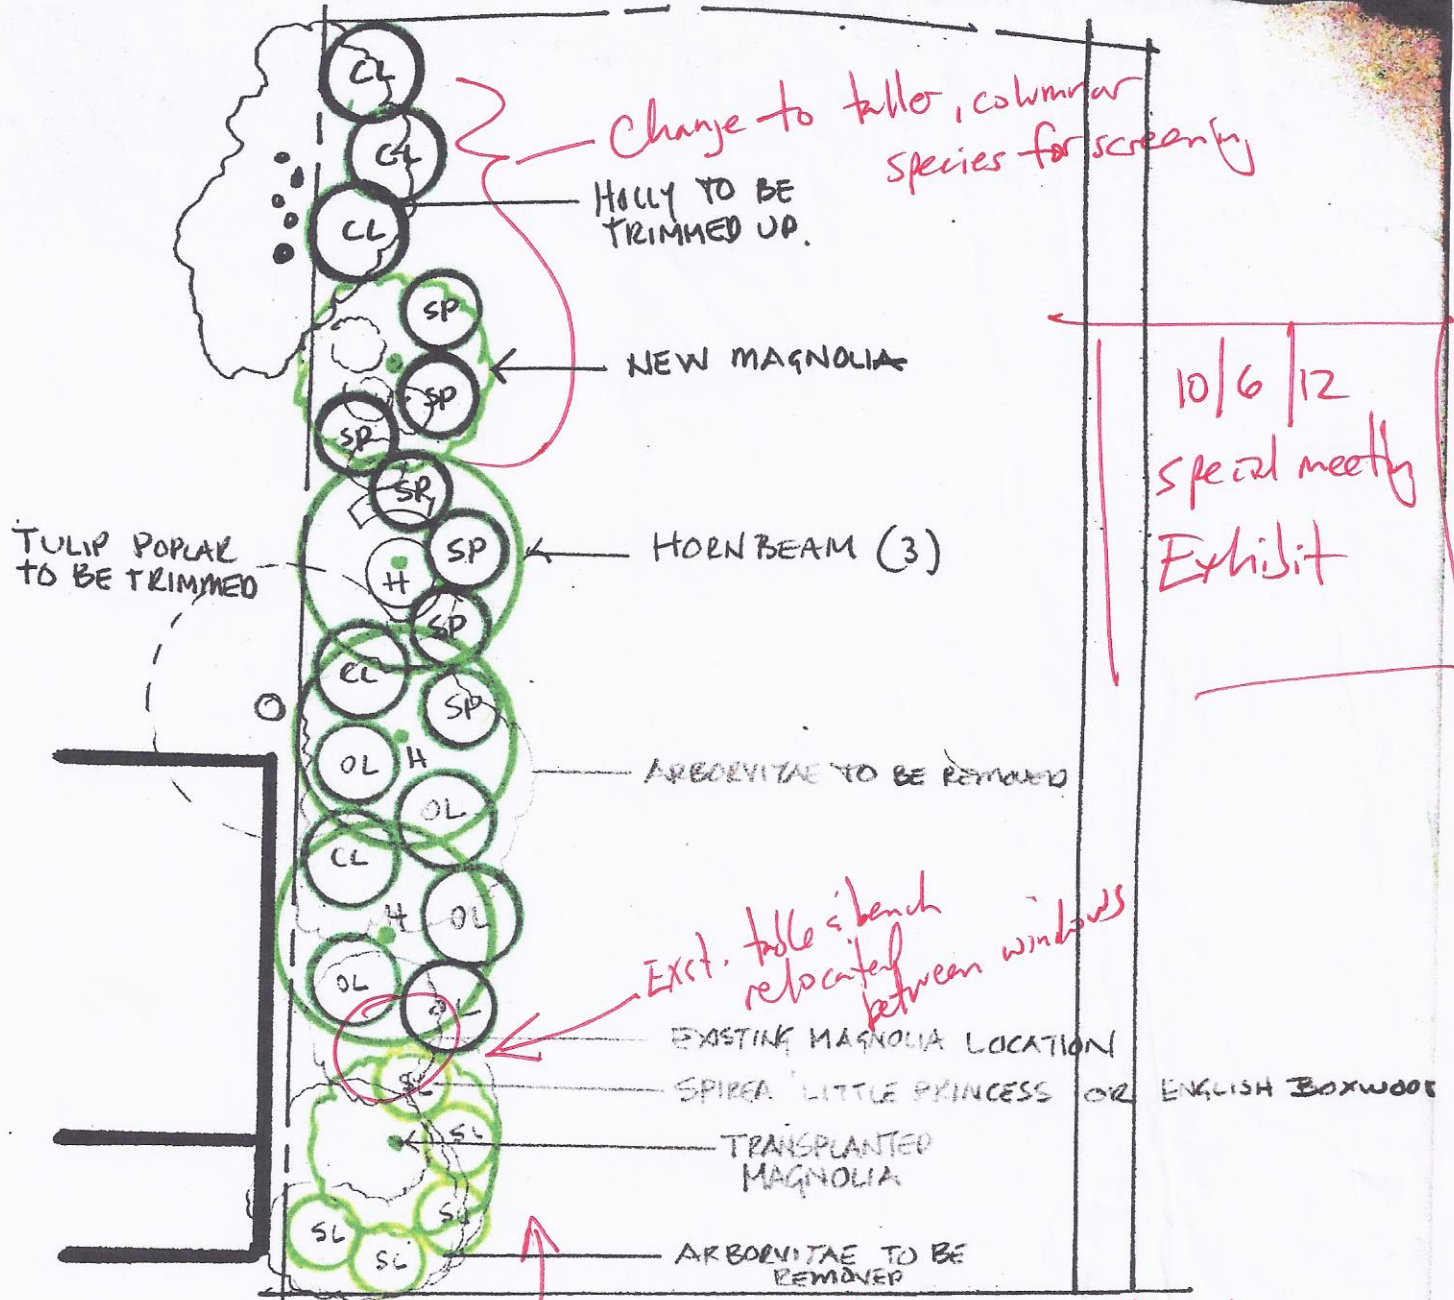 CL
CL
Change to taller, columnar
species for screening
HOLLY TO BE
TRIMMED UP.
CL
SP
NEW MAGNOLIA
SP
SP
10/6/12
special meeting
Exhibit
SP
TULIP POPLAR
TO BE TRIMMED
SP
HORNBEAM (3)
H
SP
CL
SP
OL
H
ARBORVITAE TO BE REMOVED
OL
CL
H
OL
Exst. table & bench
relocated
between windows
OL
EXISTING MAGNOLIA LOCATION
SL
SPIREA 'LITTLE PRINCESS OR ENGLISH BOXWOOD
SL
TRANSPLANTED
MAGNOLIA
SL
SL
SL
ARBORVITAE TO BE
REMOVED